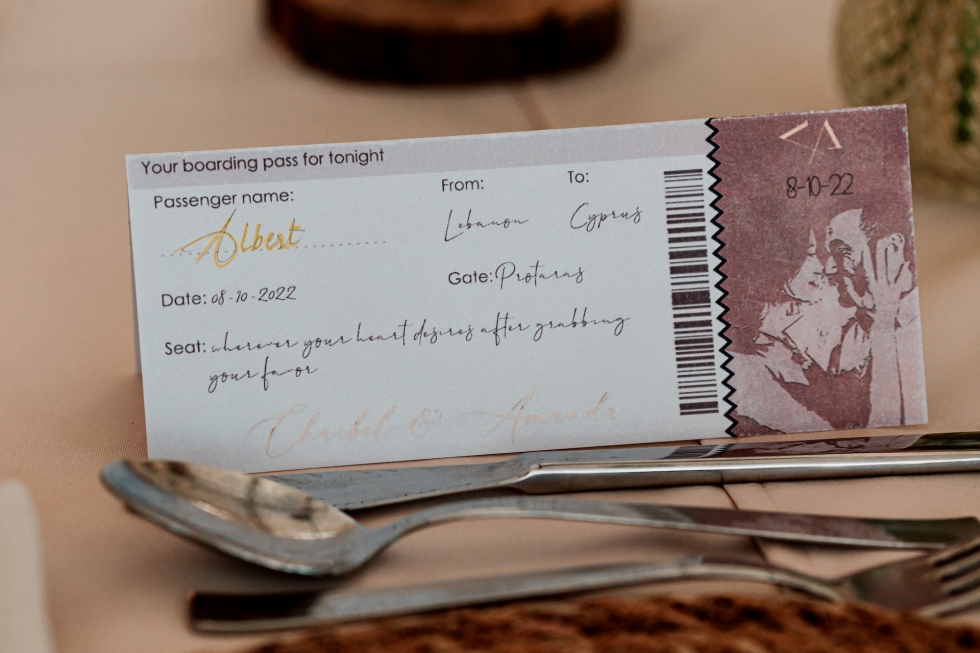 Your boarding pass for tonight
Passenger name:
From:
To:
Albert
Lebanon
Cyprus
Date: 08-10-2022
Gate: Protaras
Seat: wherever your heart desires after grabbing
your favor
Charbel & Amanda
8-10-22